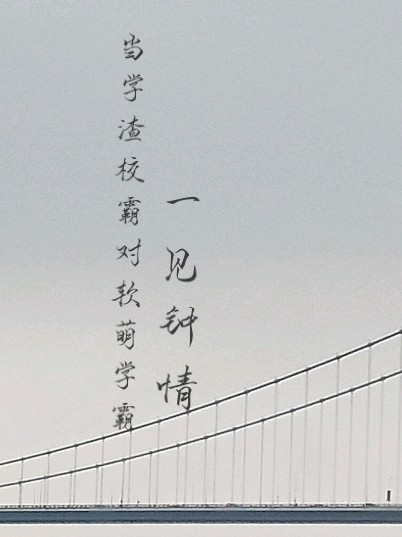 当学渣校霸对软萌学霸
一见钟情